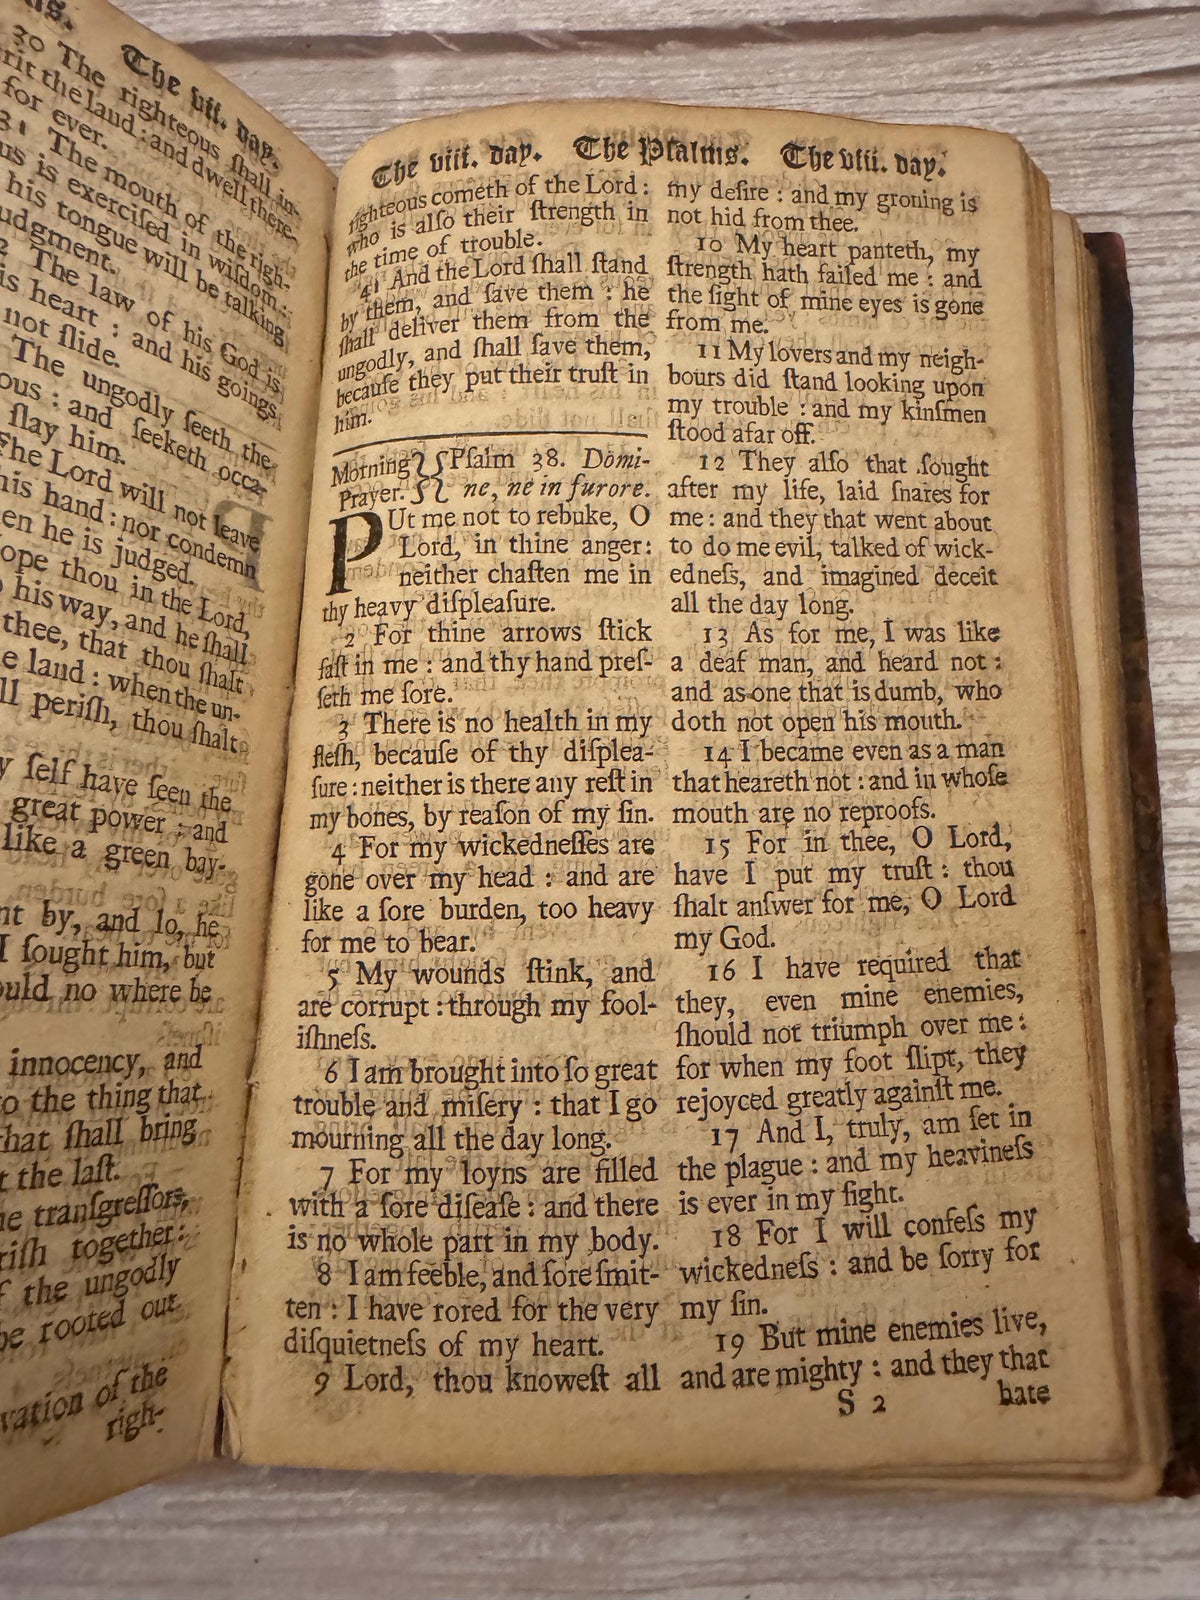 us.
The vii. day.
30 The righteous ſhall in-
rit the land : and dwell there-
for ever.
31 The mouth of the righ-
us is exerciſed in wiſdom :
his tongue will be talking
udgment.
2 The law of his God is
is heart : and his goings
not ſlide.
The ungodly ſeeth the
ous : and ſeeketh occa-
ſlay him.
The Lord will not leave
his hand : nor condemn
en he is judged.
ope thou in the Lord,
his way, and he ſhall
thee, that thou ſhalt
e land : when the un-
ll periſh, thou ſhalt
y ſelf have ſeen the
great power : and
like a green bay-
nt by, and lo, he
I ſought him, but
ould no where be
innocency, and
o the thing that
hat ſhall bring
t the laſt.
he tranſgreſſors,
riſh together :
f the ungodly
be rooted out
vation of the
righ-
The viii. day. The Pſalms. The viii. day.
righteous cometh of the Lord :
who is alſo their ſtrength in
the time of trouble.
41 And the Lord ſhall ſtand
by them, and ſave them : he
ſhall deliver them from the
ungodly, and ſhall ſave them,
becauſe they put their truſt in
him.
Morning Prayer. } { Pſalm 38. Domi-
ne, ne in furore.
PUt me not to rebuke, O
Lord, in thine anger :
neither chaſten me in
thy heavy diſpleaſure.
2 For thine arrows ſtick
faſt in me : and thy hand preſ-
ſeth me ſore.
3 There is no health in my
fleſh, becauſe of thy diſplea-
ſure : neither is there any reſt in
my bones, by reaſon of my ſin.
4 For my wickedneſſes are
gone over my head : and are
like a ſore burden, too heavy
for me to bear.
5 My wounds ſtink, and
are corrupt : through my fool-
iſhneſs.
6 I am brought into ſo great
trouble and miſery : that I go
mourning all the day long.
7 For my loyns are filled
with a ſore diſeaſe : and there
is no whole part in my body.
8 I am feeble, and ſore ſmit-
ten : I have rored for the very
diſquietneſs of my heart.
9 Lord, thou knoweſt all
my deſire : and my groning is
not hid from thee.
10 My heart panteth, my
ſtrength hath failed me : and
the ſight of mine eyes is gone
from me.
11 My lovers and my neigh-
bours did ſtand looking upon
my trouble : and my kinſmen
ſtood afar off.
12 They alſo that ſought
after my life, laid ſnares for
me : and they that went about
to do me evil, talked of wick-
edneſs, and imagined deceit
all the day long.
13 As for me, I was like
a deaf man, and heard not :
and as one that is dumb, who
doth not open his mouth.
14 I became even as a man
that heareth not : and in whoſe
mouth are no reproofs.
15 For in thee, O Lord,
have I put my truſt : thou
ſhalt anſwer for me, O Lord
my God.
16 I have required that
they, even mine enemies,
ſhould not triumph over me :
for when my foot ſlipt, they
rejoyced greatly againſt me.
17 And I, truly, am ſet in
the plague : and my heavineſs
is ever in my ſight.
18 For I will confeſs my
wickedneſs : and be ſorry for
my ſin.
19 But mine enemies live,
and are mighty : and they that
S 2 hate